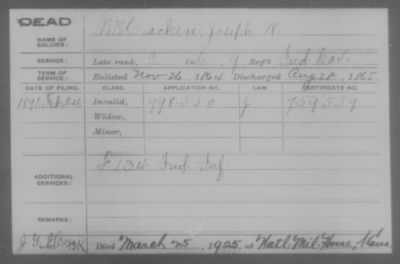 DEAD
NAME OF SOLDIER: McCracken, Joseph W
SERVICE: Late rank, Co. 9 Reg't Ind Cav.
TERM OF SERVICE: Enlisted Nov 26, 1864 Discharged Aug 28, 1865
DATE OF FILING. CLASS. APPLICATION NO. LAW. CERTIFICATE NO.
1891 Feb 24 Invalid, 998.550 J 759559
Widow,
Minor,
ADDITIONAL SERVICES: F 134 Ind Inf
REMARKS:
J. Y. Died March 25, 1925, at Nat'l Mil. Home, Kans.